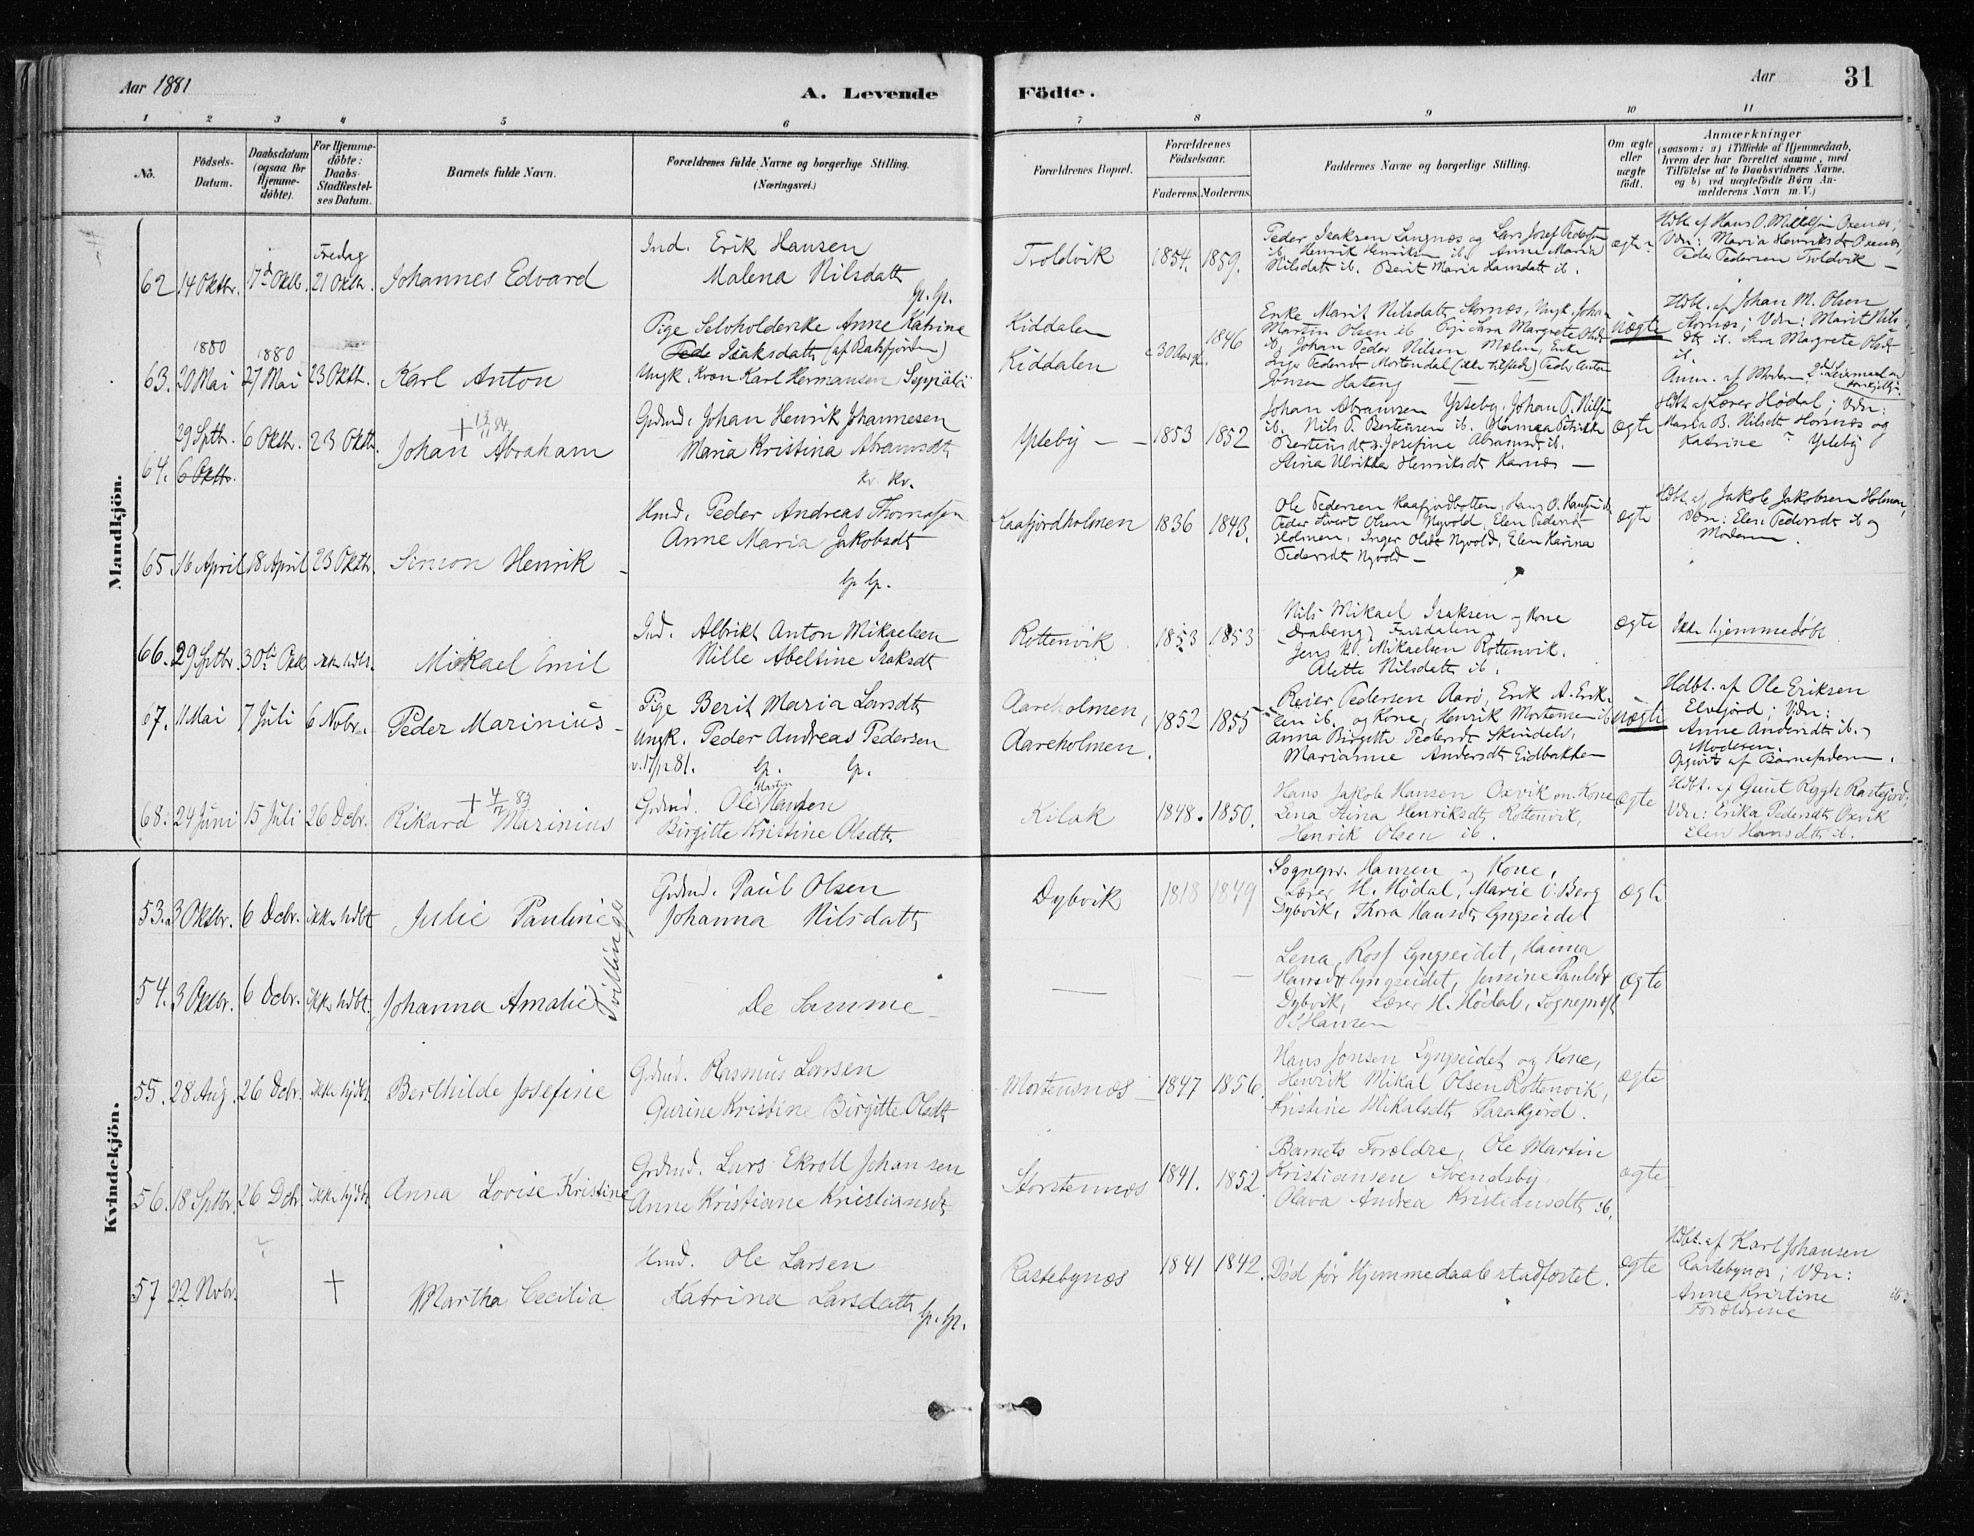 Aar 1881
A. Levende
Födte.
Aar
31
1 2 3 4 5 6 7 8 9 10 11
No.
Födsels-Datum.
Daabsdatum (ogsaa for Hjemme-döbte).
For Hjemme-döbte: Daabs-Stadfæstel-ses Datum.
Barnets fulde Navn.
Forældrenes fulde Navne og borgerlige Stilling. (Næringsvei.)
Forældrenes Bopæl.
Forældrenes Födselsaar.
Faderens. Moderens.
Faddernes Navne og borgerlige Stilling.
Om ægte eller uægte födt.
Anmærkninger
(saasom: a) i Tilfælde af Hjemmedaab,
hvem der har forrettet samme, med
Tilföielse af to Daabsvidners Navne,
og b) ved uægtefödte Börn An-
melderens Navn m. V.)
Mandkjön.
62 14 Oktbr. 17de Oktb. Fredag 21 Oktbr. Johannes Edvard
Ind. Erik Hansen
Malena Nilsdattr
Gp. Gp.
Troldvik 1854. 1859.
Peder Isaksen Langnæs og Lars Josef Pedersen
ib. Henrik Henriksen ib. Anne Maria
Nilsdattr ib. Berit Maria Hansdattr ib.
ægte
Hdbt. af Hans O. Mikkelsen Oxenæs;
Vdn: Maria Henriksdt Oxenæs,
Peder Pedersen Troldvik —
63. 1880 20 Mai 1880 27 Mai 23 Oktbr. Karl Anton
Pige Selvholderske Anne Katrine
Isaksdattr (af Balsfjorden)
Ungk. Kvæn Karl Hermansen Seppälä
Kiddalen
Kiddalen
30 Aar gl. 1846
Enke Marit Nilsdattr Stornæs, Ungk. Johan
Martin Olsen ib. Pige Sara Margrete Olsdt
ib, Johan Peder Nilsen Mælen, Enke
Inger Pedersdt Mortendal (ikke tilstede) Peder Anton
Jonsen Hateng —
uægte
Hdbt. af Johan M. Olsen
Stornæs; Vdn: Marit Nils-
dt ib. Sara Margrete Olsdt
ib.
Anm. af Moderen.
64. 29 Sptbr. 6 Oktbr. 6 Oktbr. 23 Oktbr. Johan Abraham
Grdmd. Johan Henrik Johannesen
Maria Kristina Abramsdt
Kv. Kv.
Ypleby — 1853 1852
Johan Abramsen Ypleby. Johan P. Nilsen
ib. Nils P. Bertensen ib. Hanna Petrikke
Bertensdt Josefine Abramsdt ib.
Stina Ulrikka Henriksdt Karnæs —
ægte
Hdbt. af Lærer Hödal; Vdn:
Maria B. Nilsdt Hornæs og
Katrine Ypleby
65. 16 April 18 April 23 Oktbr. Simon Henrik —
Hmd. Peder Andreas Thomasen
Anne Maria Jakobsdt
Gp. Gp.
Kaafjordholmen 1836 1843.
Ole Pedersen Kaafjordbotten, Hans O. Hansen ib
Peder Ivert Olsen Nyvold, Elen Pedersdt
Holmen, Inger Olsdt Nyvold, Elen Karina
Pedersdt Nyvold —
ægte
Hdbt. af Jakob Jakobsen Holmen,
Vdn: Elen Pedersdt ib og
Moderen.
66. 29 Sptbr. 30te Oktb. ikke hdbt. Mikael Emil
Ind. Albrikt Anton Mikaelsen
Nille Abeltine Isaksdt
Rottenvik 1853 1853
Nils Mikael Isaksen og Kone
Drabeng, Fursdalen
Jens M. Mikaelsen Rottenvik.
Alette Nilsdattr ib.
ægte
Ikke hjemmedøbt
67. 11 Mai 7 Juli 6 Novbr. Peder Marinius —
Pige Berit Maria Larsdt
Ungk. Peder Andreas Pedersen
v. 17/12 81. Gp. Gp.
Aareholmen,
Aareholmen.
1852 1855
Reier Pedersen Aarö, Erik A. Erik-
sen ib. og Kone, Henrik Mortensen ib
Anna Birgitte Pedersdt Skindelv,
Marianne Andersdt Eidbakken
uægte
Hdbt. af Ole Eriksen
Elvejord; Vdn:
Anne Andersdt ib. og
Moderen.
Opgivet af Barnefaderen.
68. 24 Juni 15 Juli 26 Decbr. Rikard Marinius
Grdmd. Ole Martin Hansen
Birgitte Kristine Olsdt
Kilak 1848. 1850.
Hans Jakob Hansen Oxvik og Kone
Lena Stina Henriksdt Rottenvik,
Henrik Olsen ib.
ægte
Hdbt. af Gunt Rygh Rastefjord.
Vdn: Erika Pedersdt Oxvik
Elen Hansdt ib.
Kvindekjön.
53. 3 Oktbr. 6 Decbr. ikke hdbt Julie Pauline
Tvillinge
Grdmd. Paul Olsen
Johanna Nilsdattr
Dybvik 1818 1849
Sognepr. Hansen og Kone,
Lærer H. Hödal, Marie Berg
Dybvik, Thora Hansdt Lyngseidet
ægte
54. 3 Oktbr. 6 Decbr. ikke hdbt. Johanna Amalie
De Samme
— —
Lena Rosf Lyngseidet, Hanna
Hansdt Lyngseidet, Jensine Paulsdt
Dybvik, Lærer H. Hödal, Sognepræst
Hansen —
ægte
55. 28 Aug. 26 Decbr. ikke hjdbt. Berthilde Josefine
Grdmd. Rasmus Larsen
Gurine Kristine Birgitte Olsdt
Mortensnæs — 1847 1856.
Hans Jonsen Lyngseidet og Kone,
Henrik Mikal Olsen Rottenvik,
Kristine Mikalsdt Parakjord.
ægte
56. 18 Sptbr. 26 Decbr. ikke hjdbt. Anna Lovise Kristine
Grdmd. Lars Ekroll Johansen
Anne Kristiane Kristiansdt
Storstennæs 1841. 1852.
Barnets Forældre, Ole Martin
Kristiansen Svendsby
Olava Andrea Kristiansdt ib.
ægte
57 22 Novbr. † Martha Cecilia
Hmd. Ole Larsen
Katrina Larsdattr
Gp. Gp.
Rastebynæs 1841 1842.
Død før Hjemmedaab stadfæstet.
ægte
Hdbt. af Karl Johansen
Rastebynæs; Vdn:
Anne Kristine ib.
Forældrene